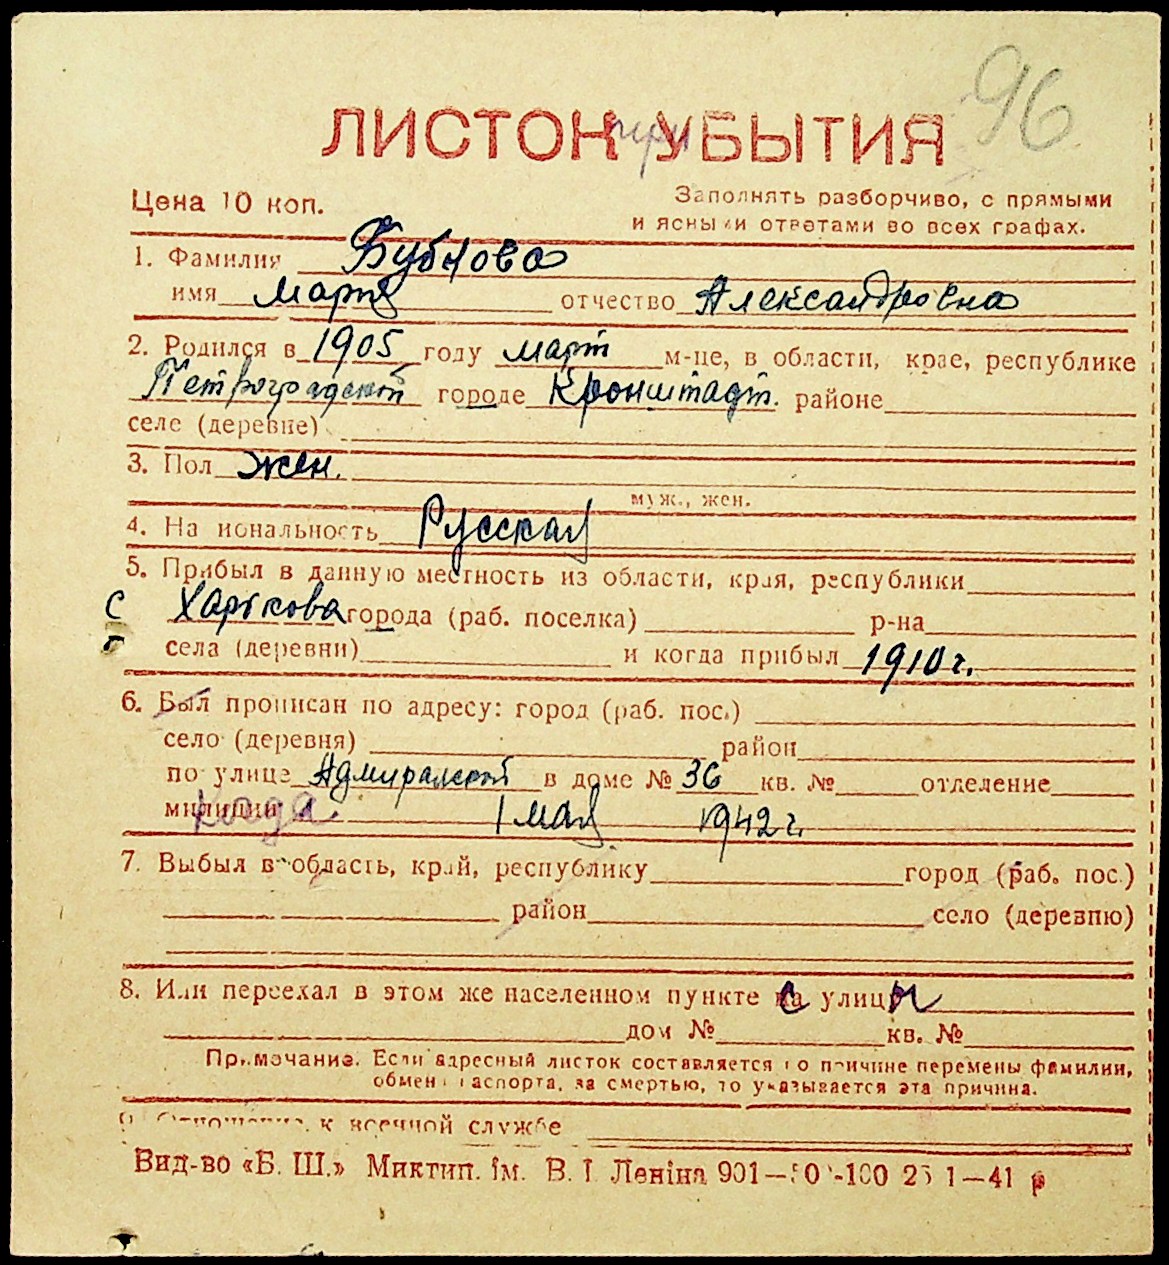 96
ЛИСТОК при УБЫТИЯ
Цена 10 коп.
Заполнять разборчиво, с прямыми
и ясными ответами во всех графах.
1. Фамилия Бубнова
имя Мария отчество Александровна
2. Родился в 1905 году март м-це, в области, крае, республике
Петроградской городе Кронштадт. районе
селе (деревне)
3. Пол жен.
муж., жен.
4. Национальность Русская
5. Прибыл в данную местность из области, края, республики
с Харькова города (раб. поселка) р-на
села (деревни) и когда прибыл 1910 г.
6. Был прописан по адресу: город (раб. пос.)
село (деревня) район
по улице Адмиральской в доме № 36 кв. № отделение
милиции Когда 1 мая 1942 г.
7. Выбыл в область, край, республику город (раб. пос.)
район село (деревню)
8. Или переехал в этом же населенном пункте с улицы
дом № кв. №
Примечание. Если адресный листок составляется по причине перемены фамилии,
обмена паспорта, за смертью, то указывается эта причина.
9. Отношение к военной службе
Вид-во «Б. Ш.» Миктип. ім. В. І. Леніна 901— -100 25 1—41 р